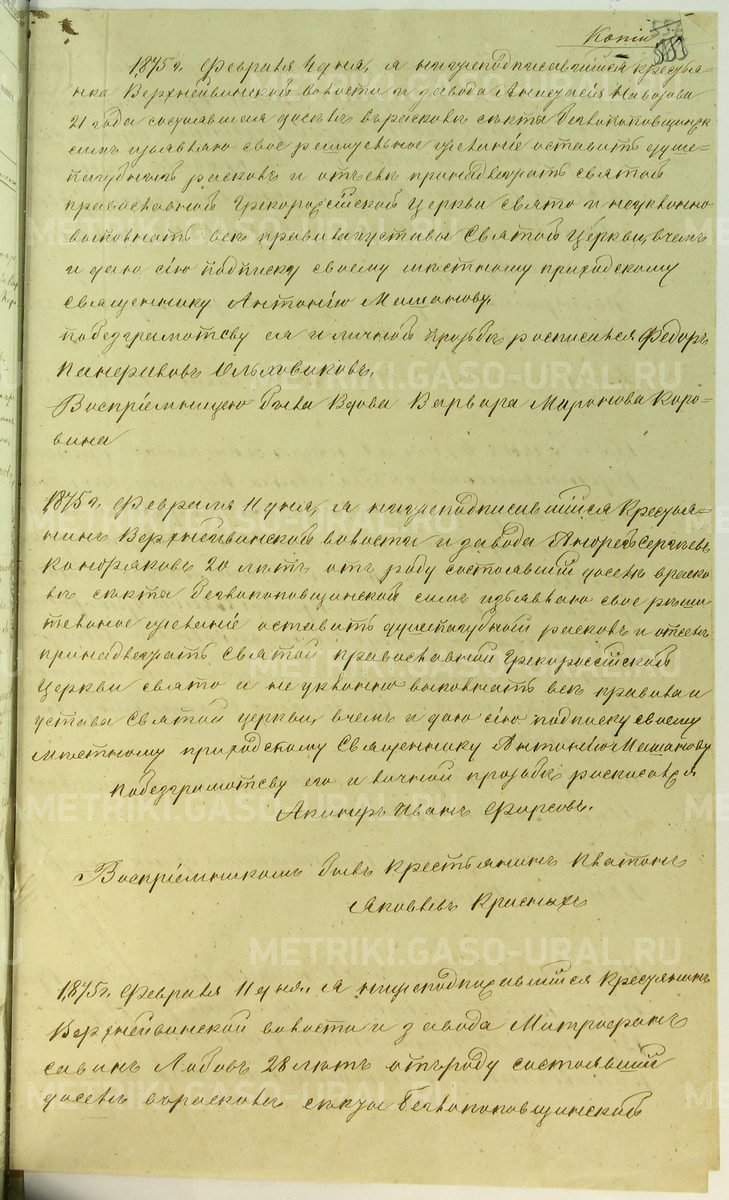 Копiи
1875 г. Февраля 4 дня, я нижеподписавшiйся крестья-
нка Верхнейвинской волости и завода Анастасiя
21 года состоявшая доселѣ въ расколѣ секты беглопоповщинск
симъ изъявляю свое решительное желанiе оставить душе-
пагубный расколъ и отселѣ принадлежать святой
православной Грекороссiйской Церкви свято и неуклонно
выполнять всѣ правила и уставы Святой Церкви, въ чемъ
и даю сiю подписку своему мѣстному приходскому
священнику Антонiю Мешанову.
по безграмотсву ея и личной прозьбѣ росписался Федоръ
Панфиловъ Ольховиковъ,
Воспрiемницею была Вдова Варвара Миронова Коро-
вина
1875 г. Февраля 11 дня, я нижеподписавшiйся Крестья-
нинъ Верхнейвинской волости и завода Андрей Сергѣевъ
Кондряковъ 20 лѣтъ отъ роду состоявшiй доселѣ в раско
лѣ секты беглопоповщинской симъ изъявляю свое рѣши
тельное желанiе оставить душепагубный расколъ и отселѣ
принадлежать Святой православной Грекороссiйской
Церкви свято и неуклонно выполнять всѣ правила и
устава Святой церкви, в чемъ и даю сiю подписку своему
мѣстному приходскому Священнику Антонiю Мешанову
по безграмотсву его и личной прозьбѣ расписался
Иванъ Фирсовъ.
Воспрiемникомъ былъ крестьянинъ Платонъ
Яковлевъ Красныхъ
1875 г. Февраля 11 дня. я нижеподписавшiйся крестьянинъ
Верхнейвинской волости и завода Митрофанъ
Савинъ Лобовъ 28 лѣтъ отъ роду состоявшiй
доселѣ въ расколѣ секты беглопоповщинской
METRIKI.GASO-URAL.RU